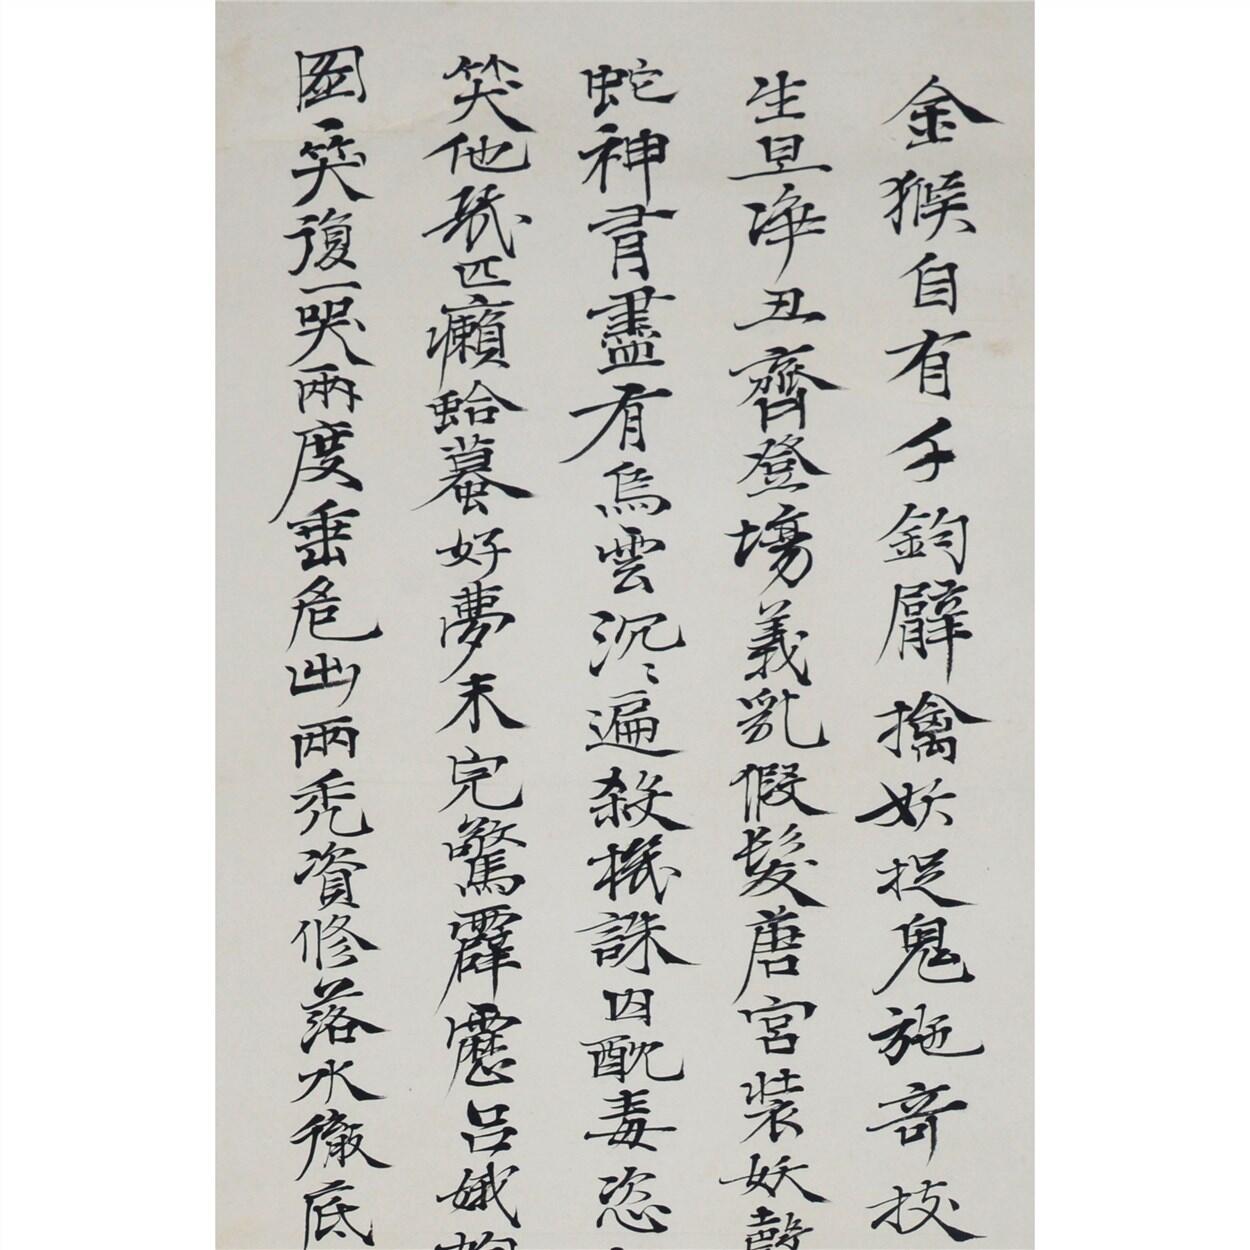 金猴自有千鈞臂擒妖捉鬼施奇技
生旦淨丑齊登場義乳假髮唐宮裝妖
蛇神盡有烏雲沉〻遍殺機誅囚酖毒恣
笑他幾匹癩蛤蟇好夢未完驚霹靂呂娥
圖一笑復一哭兩度垂危出兩禿資修落水徹底